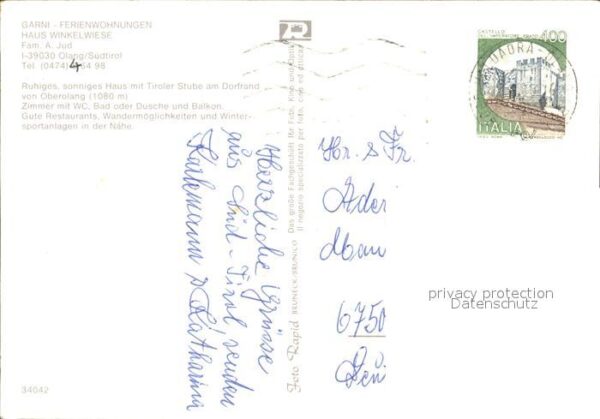 GARNI - FERIENWOHNUNGEN
HAUS WINKELWIESE
Fam. A. Jud
I-39030 Olang/Südtirol
Tel. (0474) 4 64 98
Ruhiges, sonniges Haus mit Tiroler Stube am Dorfrand
von Oberolang (1080 m)
Zimmer mit WC, Bad oder Dusche und Balkon.
Gute Restaurants, Wandermöglichkeiten und Winter-
sportanlagen in der Nähe.
Herzliche Grüsse
aus Süd-Tirol senden
Karlemann & Katharina
Foto Rapid BRUNECK/BRUNICO
Das große Fachgeschäft für Foto, Kino und
Il negozio specializzato per foto, cine ed
CASTELLO
400
ITALIA
Hr. & Fr.
Ader
6750
privacy protection
Datenschutz
34042